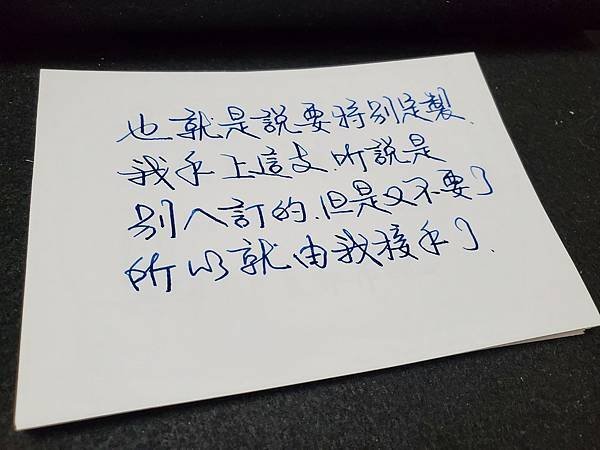 也就是說要特別定製.
我手上這支.听說是
別人訂的.但是又不要了
所以就由我接手了.